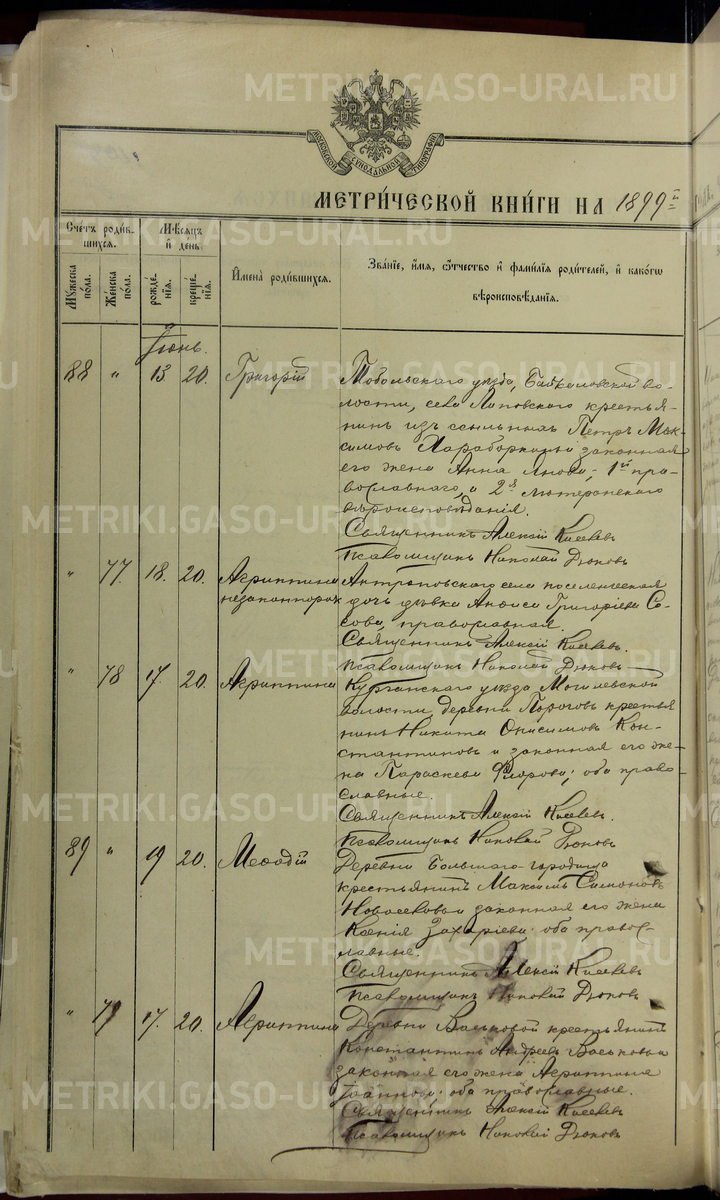 METRIKI.GASO-URAL.RU
МОСКОВСКОЙ СѴНОДАЛЬНОЙ ТИПОГРАФІИ
МЕТРИ́ЧЕСКОЙ КНИ́ГИ НА 1899 й
Сче́тъ роди́в-
шихся.
Мѣ́сяцъ
и҆ де́нь.
Му́жеска
по́ла.
Же́нска
по́ла.
рожде́-
нїѧ.
креще́-
нїѧ.
И҆мена̀ роди́вшихся.
Зва́нїе, и҆́мѧ, ѻ҆́тчество и҆ фами́лїѧ роди́телей, и҆ како́гѡ
вѣроисповѣ́данїѧ.
Іюнь.
88 " 13 20. Григорій
Тобольскаго уѣзда, Байкаловской во-
лости, села Липовскаго крестья-
нинъ изъ ссыльныхъ Петръ Мак-
симовъ и законная
его жена Анна 1й пра-
вославнаго, а 2я лютеранскаго
вѣроисповѣданія.
Священникъ Алексій Кисевъ
Псаломщикъ Николай Дюковъ
" 77 18. 20. Агриппина
незаконнорож
Антроповскаго села поселенческая
дочь дѣвка Анфиса Григоріева Со-
сова, православная.
Священникъ Алексій Кисевъ.
Псаломщикъ Николай Дюковъ
" 78 17. 20. Агриппина
Курганскаго уѣзда Могилевской
волости, деревни Пороговъ крестья
нинъ Никита Онисимовъ Кон-
стантиновъ и законная его же-
на Параскева Флорова; оба право-
славные.
Священникъ Алексій Кисевъ.
Псаломщикъ Николай Дюковъ
89 " 19 20. Меѳодій
Деревни Большаго-городища
крестьянинъ Максимъ Симоновъ
Новоселовъ и законная его жена
Ксенія Захаріева; оба правос-
лавные.
Священникъ Алексій Кисевъ
Псаломщикъ Николай Дюковъ
" 79 17. 20. Агриппина
Деревни Васьковой крестьянинъ
Константинъ Андреевъ Васьковъ и
законная его жена Агриппина
Іоаннова; оба православные.
Священникъ Алексій Кисевъ
Псаломщикъ Николай Дюковъ